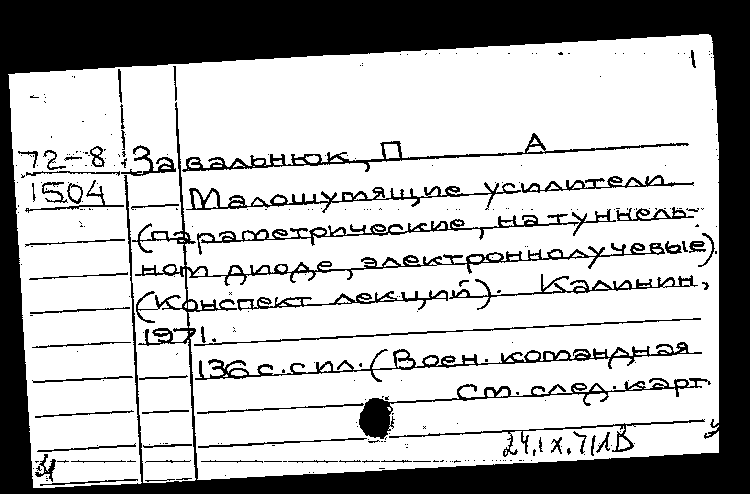 1
72-8 Завальнюк, П А
1504 Малошумящие усилители.
(параметрические, на туннель-
ном диоде, электроннолучевые).
(Конспект лекций). Калинин,
1971.
136 с. с ил. (Воен. командная
См. след. карт.
24.IX.71